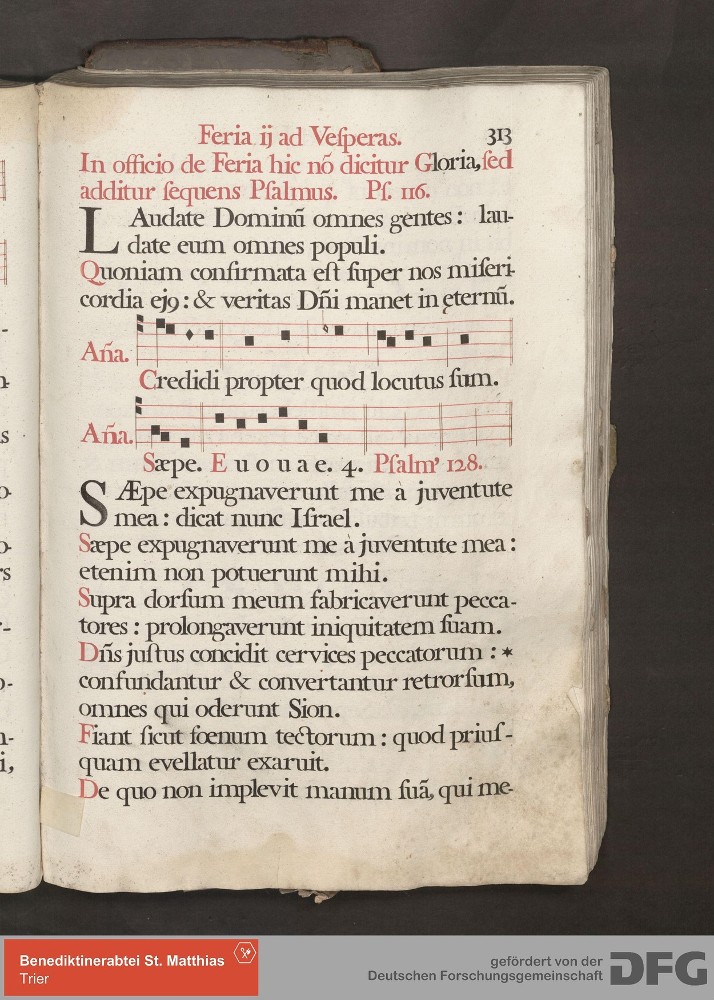 Feria ij ad Veſperas. 313
In officio de Feria hic nõ dicitur Gloria, ſed
additur ſequens Pſalmus. Pſ. 116.
LAudate Dominũ omnes gentes : lau-
date eum omnes populi.
Quoniam confirmata eſt ſuper nos miſeri-
cordia ej9 : & veritas Dñi manet in ęternũ.
Aña.
Credidi propter quod locutus ſum.
Aña.
Sæpe. E u o u a e. 4. Pſalm9 128.
SÆpe expugnaverunt me à juventute
mea : dicat nunc Iſrael.
Sæpe expugnaverunt me à juventute mea :
etenim non potuerunt mihi.
Supra dorſum meum fabricaverunt pecca-
tores : prolongaverunt iniquitatem ſuam.
Dñs juſtus concidit cervices peccatorum : *
confundantur & convertantur retrorſum,
omnes qui oderunt Sion.
Fiant ſicut fœnum tectorum : quod priuſ-
quam evellatur exaruit.
De quo non implevit manum ſuã, qui me-
Benediktinerabtei St. Matthias
Trier
gefördert von der
Deutschen Forschungsgemeinschaft
DFG